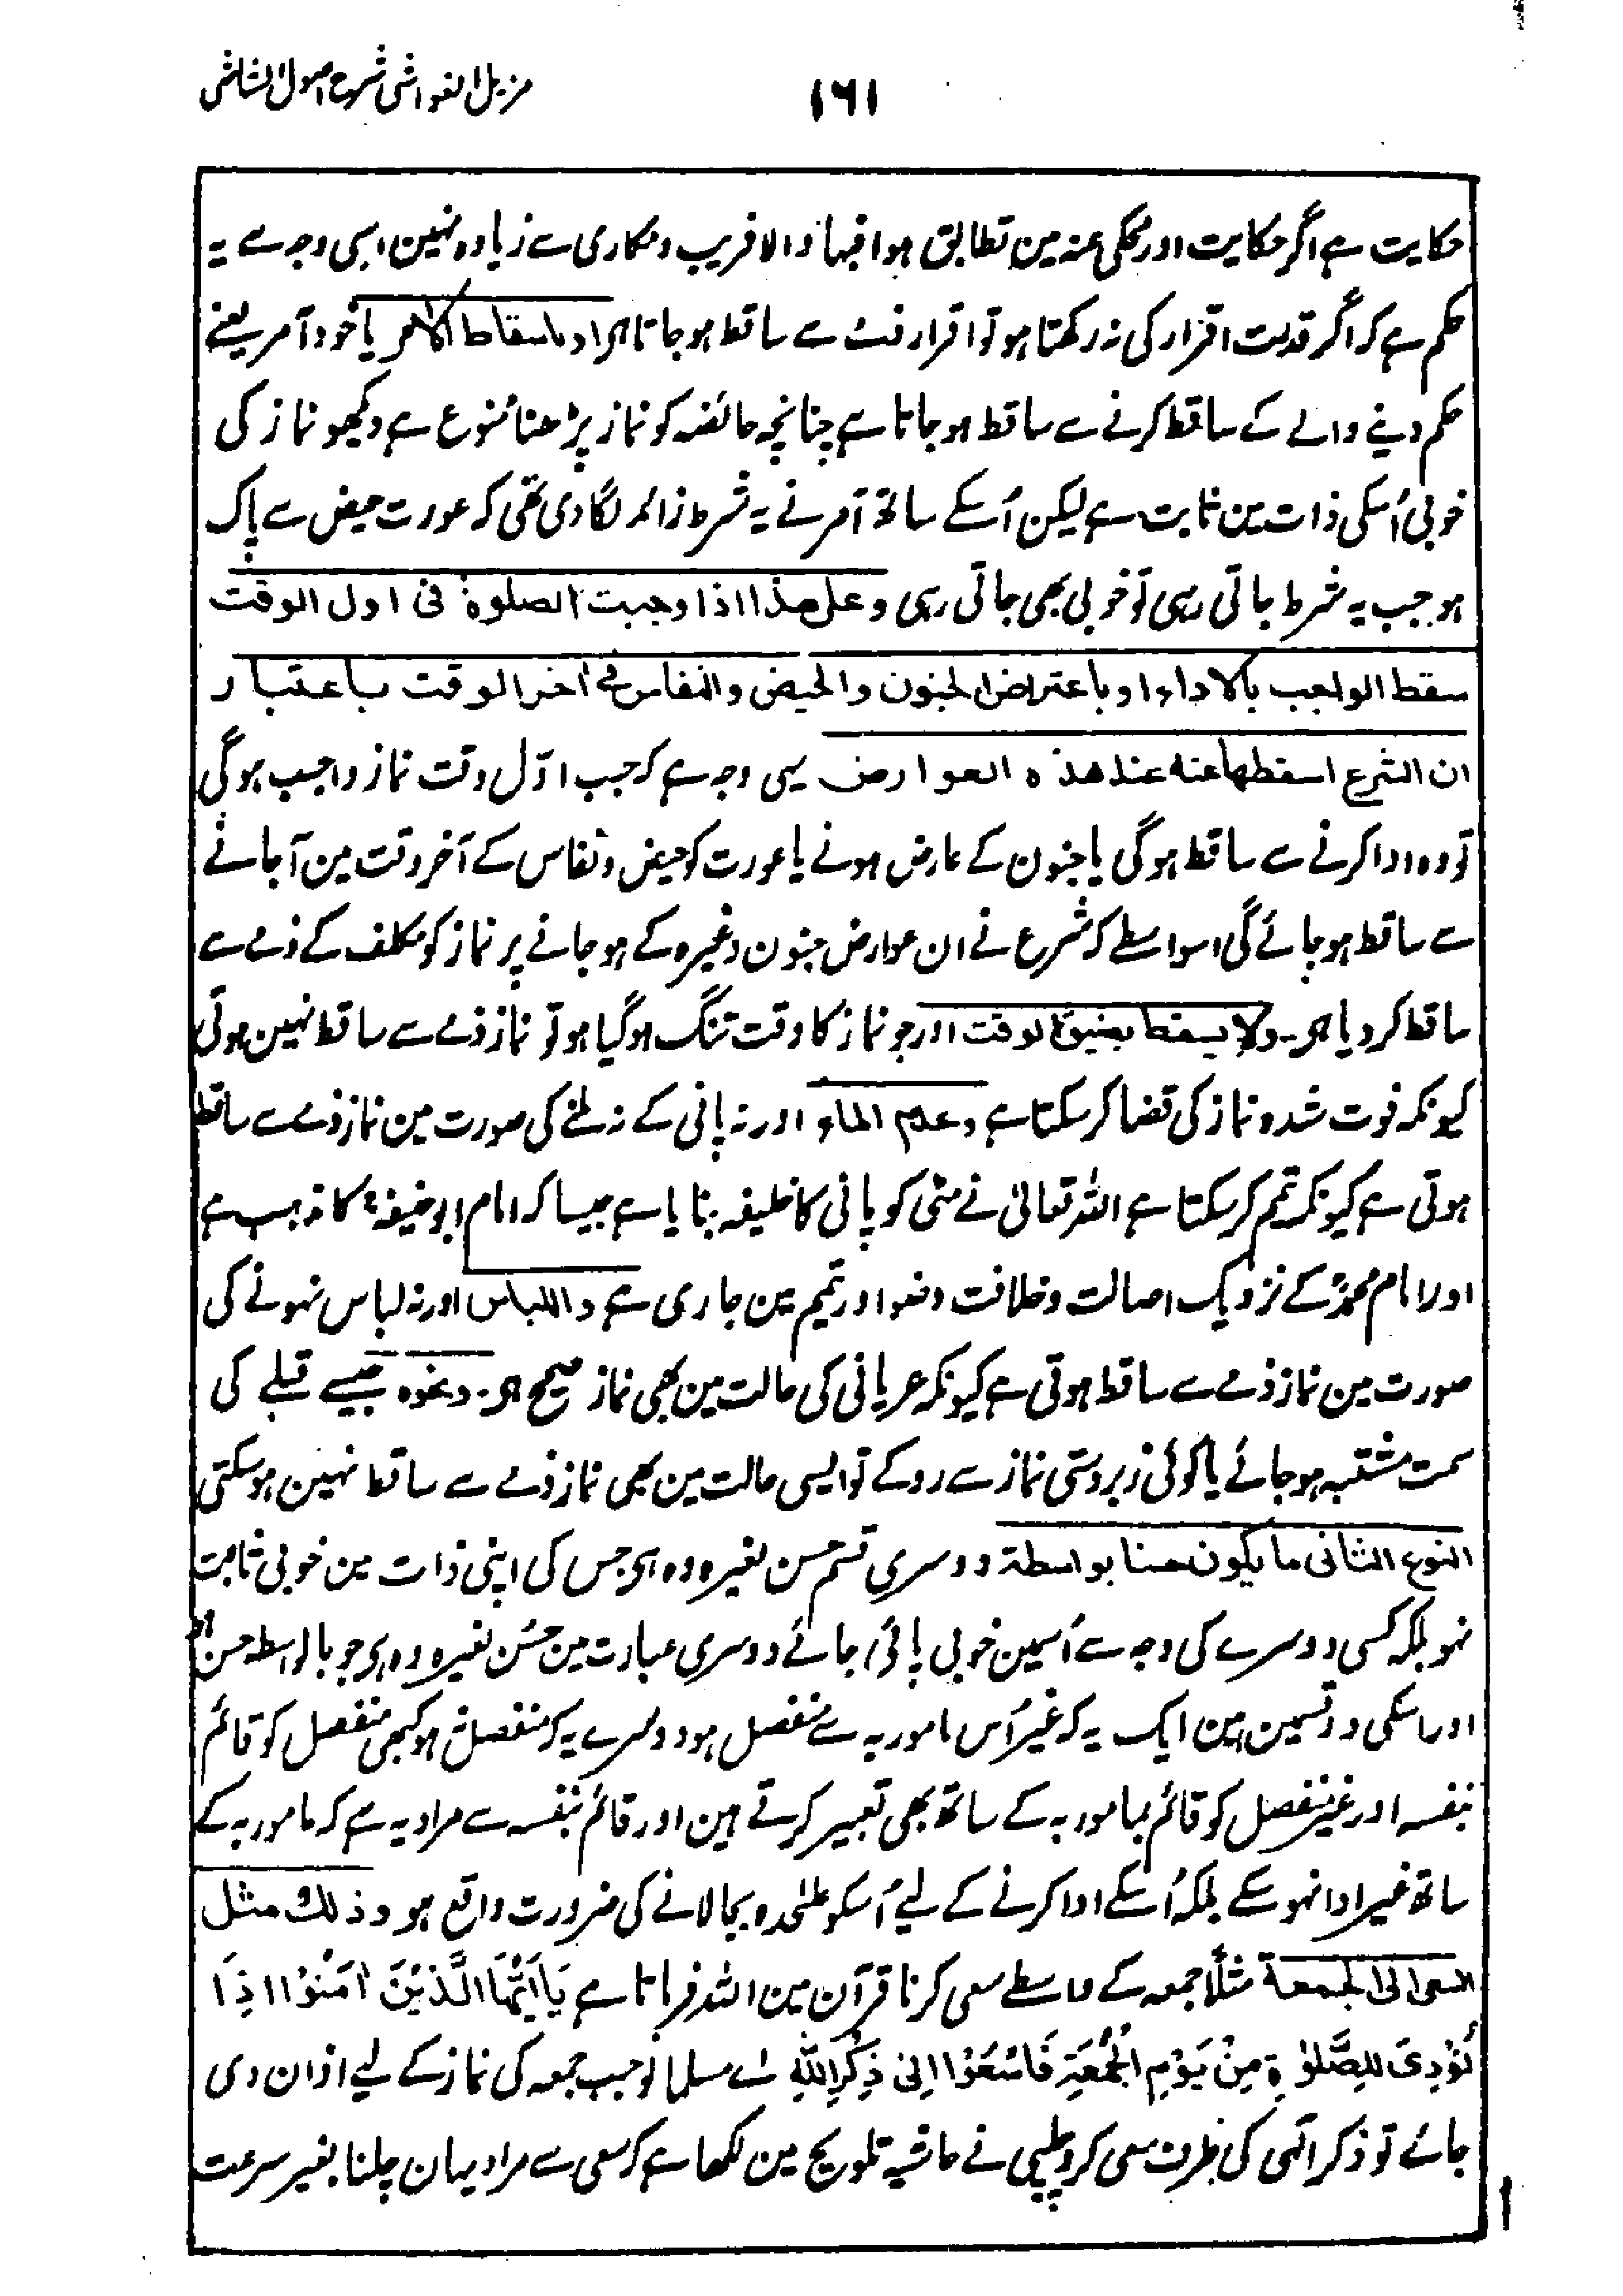 مزیل الغواشی شرح اصول الشاشی
۱۶۱
حکایت ہے اگر حکایت اور محکی عنہ مین تطابق ہوا فبہا والا فریب و مکاری سے زیادہ نہین اسی وجہ سے یہ
حکم ہے کہ اگر قدرت اقرار کی نہ رکھتا ہو تو اقرار فٹ سے ساقط ہوجاتا ہی او باسقاط الامر یا خود آمر یعنے
حکم دینے والے کے ساقط کرنے سے ساقط ہوجاتا ہے چنانچہ حائضہ کو نماز پڑھنا ممنوع ہے دیکھو نماز کی
خوبی اُسکی ذات مین ثابت ہے لیکن اُسکے ساتھ آمر نے یہ شرط زائد لگا دی تھی کہ عورت حیض سے پاک
ہو جب یہ شرط جاتی رہی تو خوبی بھی جاتی رہی وعلی هذا اذا وجبت الصلوة فی اول الوقت
سقط الواجب بالاداء او باعتراض الجنون والحیض والنفاس فی اٰخر الوقت باعتبار
ان الشرع اسقطها عنه عند هذه العوارض یہی وجہ ہے کہ جب اوّل وقت نماز واجب ہوگی
تو وہ ادا کرنے سے ساقط ہوگی یا جنون کے عارض ہونے یا عورت کو حیض و نفاس کے آخر وقت مین آجانے
سے ساقط ہوجائے گی اسواسطے کہ شرع نے ان عوارض جنون وغیرہ کے ہو جانے پر نماز کو مکلف کے ذمے سے
ساقط کردیا ہی۔ ولا یسقط بضیق الوقت اور جو نماز کا وقت تنگ ہوگیا ہو تو نماز ذمے سے ساقط نہین ہوتی
کیونکہ فوت شدہ نماز کی قضا کرسکتا ہے وعدم الماء اور نہ پانی کے نہ ملنے کی صورت مین نماز ذمے سے ساقط
ہوتی ہے کیونکہ تیمم کرسکتا ہے اللہ تعالیٰ نے مٹی کو پانی کا خلیفہ بنایا ہے جیسا کہ امام ابوحنیفہؒ کا مذہب ہے
اور امام محمدؒ کے نزدیک اصالت و خلافت وضو اور تیمم مین جاری ہے واللباس اور نہ لباس نہونے کی
صورت مین نماز ذمے سے ساقط ہوتی ہے کیونکہ عریانی کی حالت مین بھی نماز صحیح ہی۔ ونحوہ جیسے قبلے کی
سمت مشتبہ ہوجائے یا کوئی زبردستی نماز سے روکے تو ایسی حالت مین بھی نماز ذمے سے ساقط نہین ہوسکتی
النوع الثانی ما یکون حسنا بواسطة دوسری قسم حسن لغیرہ وہ ہی جس کی اپنی ذات مین خوبی ثابت
نہو بلکہ کسی دوسرے کی وجہ سے اُسمین خوبی پائی جائے دوسری عبارت مین حسُن لغیرہ وہ ہی جو بالواسطہ حسن
اور اسکی دو قسمین ہین ایک یہ کہ غیر اُس مامور بہ سے منفصل ہو دوسرے یہ کہ منفصل نہو کبھی منفصل کو قائم
بنفسہ اور غیر منفصل کو قائم بمامور بہ کے ساتھ بھی تعبیر کرتے ہین اور قائم بنفسہ سے مراد یہ ہے کہ مامور بہ کے
ساتھ غیر ادا نہوسکے بلکہ اُسکے ادا کرنے کے لیے اُسکو علٰحدہ بجا لانے کی ضرورت واقع ہو وذلك مثل
السعی الی الجمعة مثلًا جمعہ کے واسطے سعی کرنا قرآن مین اللہ فرماتا ہے یٰٓاَیُّهَا الَّذِیْنَ اٰمَنُوْا اِذَا
نُوْدِیَ لِلصَّلٰوةِ مِنْ یَوْمِ الْجُمُعَةِ فَاسْعَوْا اِلٰی ذِکْرِ اللّٰهِ اے مسلمانو جب جمعہ کی نماز کے لیے اذان دی
جائے تو ذکر الٰہی کی طرف سعی کرو چلپی نے حاشیہ تلویح مین لکھا ہے کہ سعی سے مراد یہان چلنا بغیر سرعت